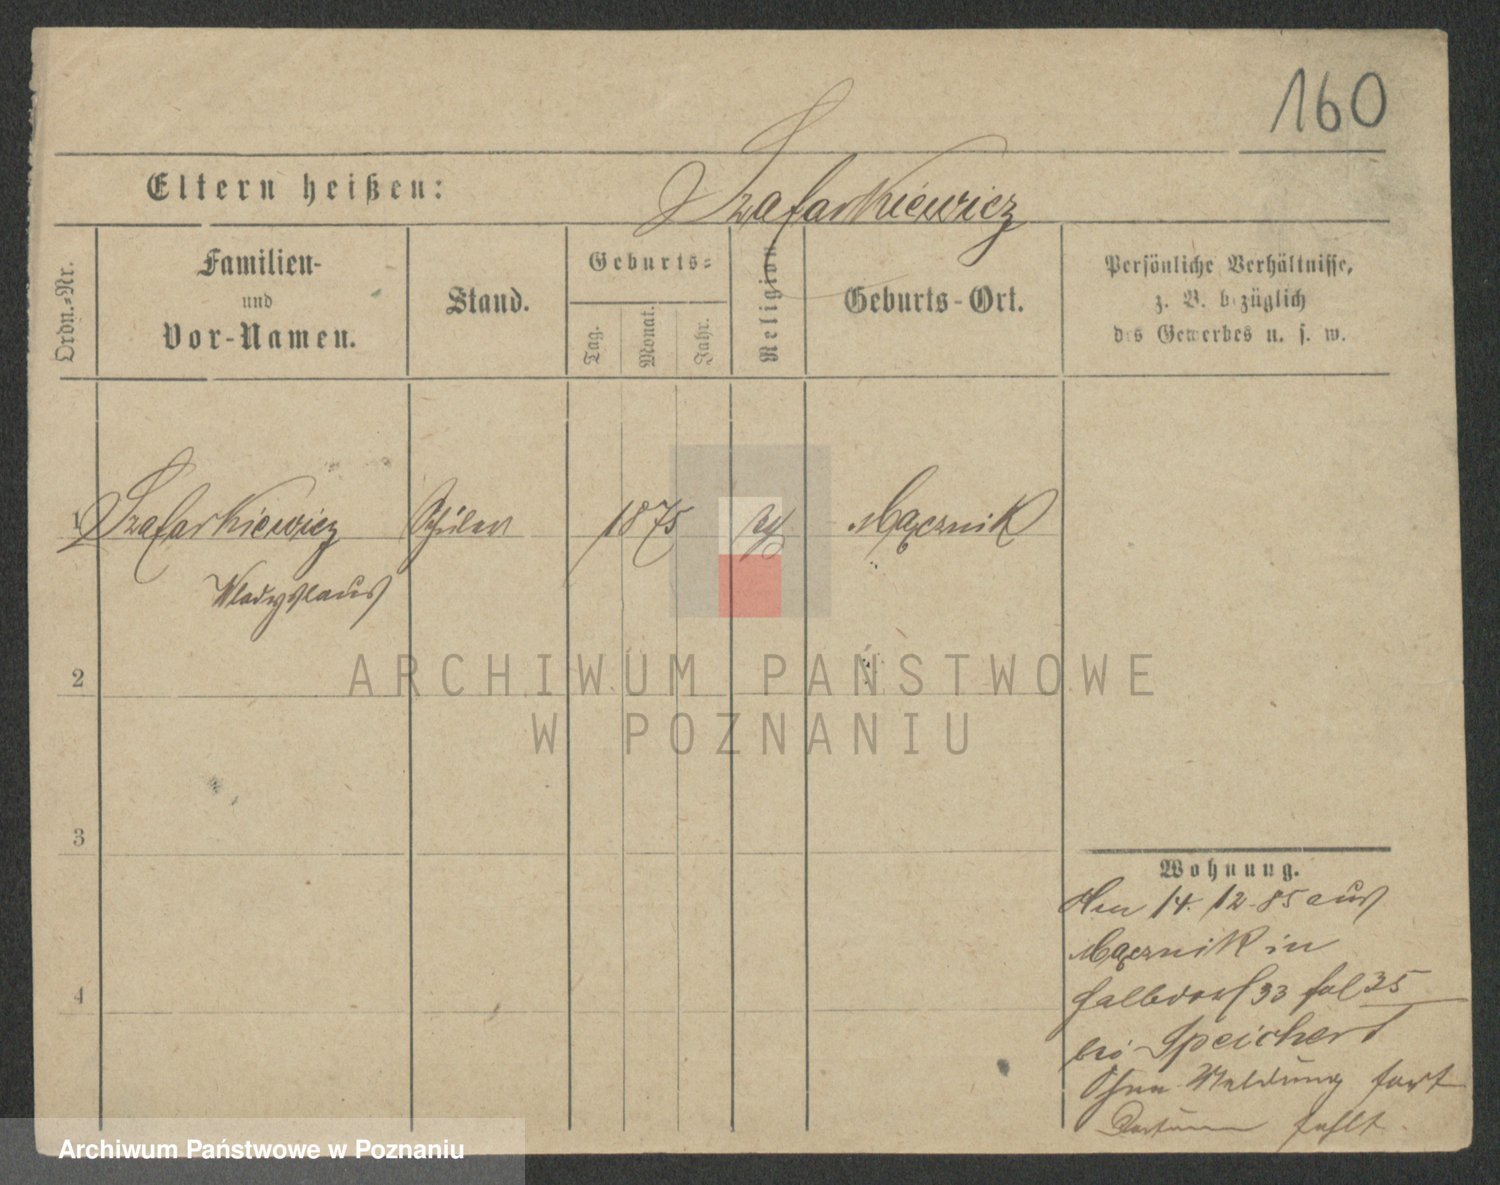 160
Eltern heißen: Szafarkiewicz
Ordn.-Nr.
Familien-
und
Vor-Namen.
Stand.
Geburts-
Tag.
Monat.
Jahr.
Religion
Geburts-Ort.
Persönliche Verhältnisse,
z. B. bezüglich
des Gewerbes u. s. w.
1 Szafarkiewicz Schüler 1875 Mącznik
Wladyslaus
2
3
4
Wohnung.
Den 14. 12. 85 aus
Mącznik in
Halbdorf 33 fol 35
bei Speichert
Ohne Meldung fort
Datum fehlt.
ARCHIWUM PAŃSTWOWE
W POZNANIU
Archiwum Państwowe w Poznaniu